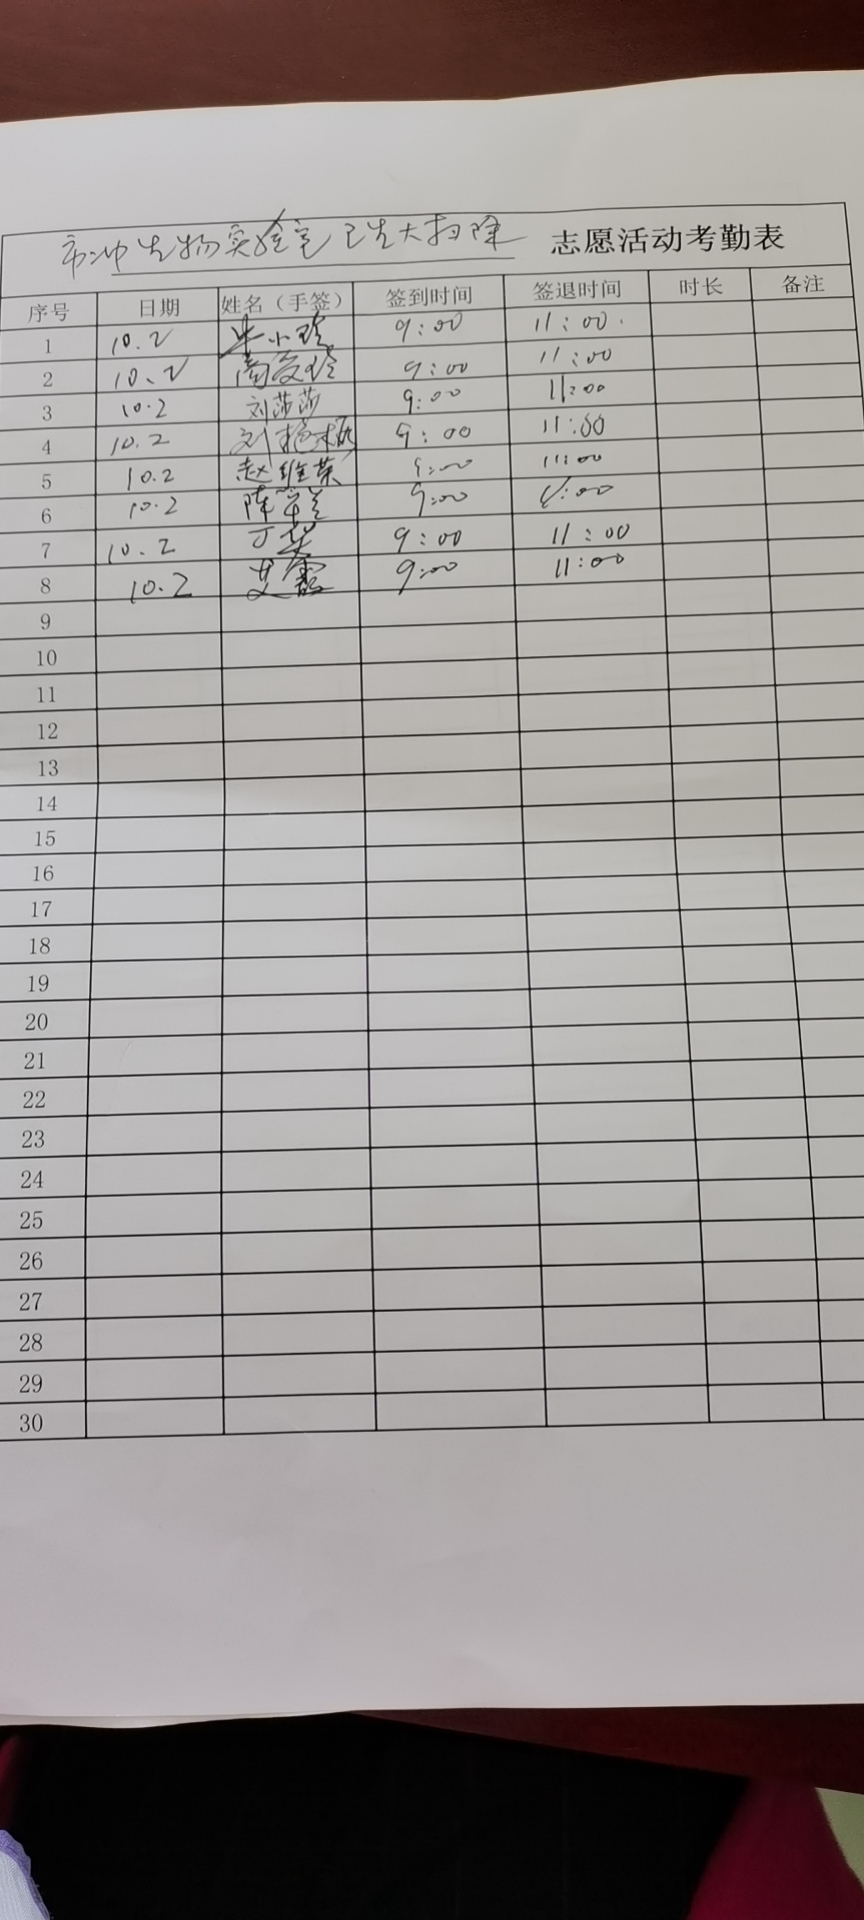 生物实验室卫生大扫除 志愿活动考勤表
序号 日期 姓名（手签） 签到时间 签退时间 时长 备注
1 10.2 小玲 9:00 11:00.
2 10.2 9:00 11:00
3 10.2 刘莎莎 9:00 11:00
4 10.2 刘艳 9:00 11:00
5 10.2 赵维荣 9:00 11:00
6 10.2 陈 9:00 11:00
7 10.2 丁 9:00 11:00
8 10.2 艾霞 9:00 11:00
9
10
11
12
13
14
15
16
17
18
19
20
21
22
23
24
25
26
27
28
29
30